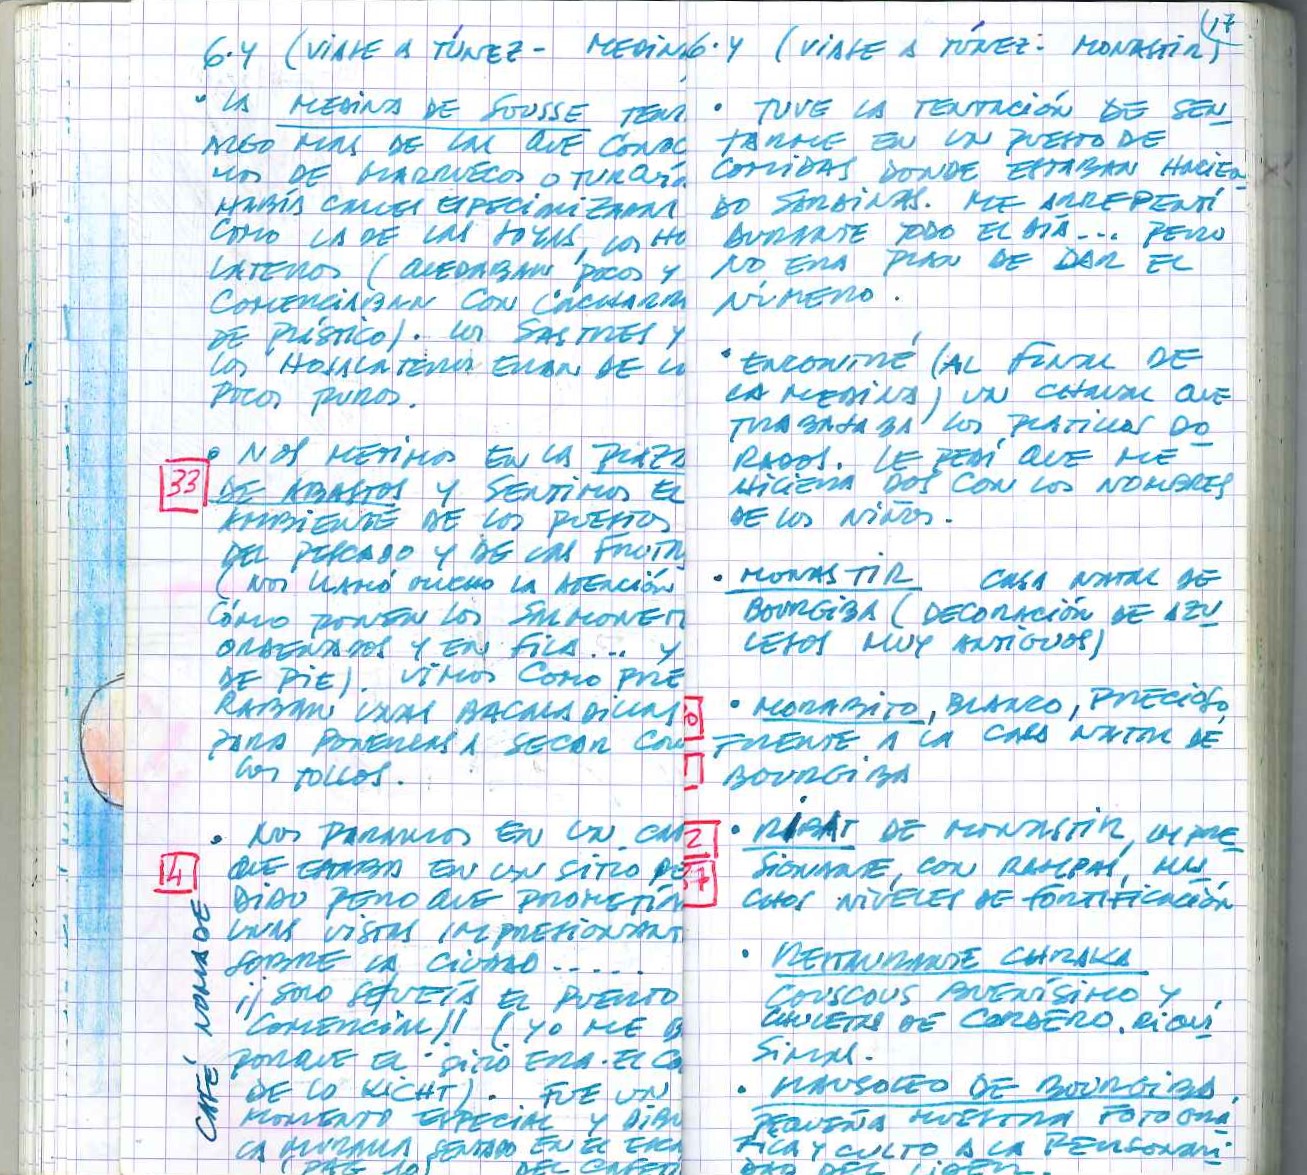 6.4 (VIAJE A TÚNEZ - MEDIN
• LA MEDINA DE SOUSSE TENI
ALGO MAS DE LAS QUE CONOC
MOS DE MARRUECOS O TURQUÍA
HABÍA CALLES ESPECIALIZADAS
COMO LA DE LAS JOYAS, LOS HO
LATEROS (QUEDABAN POCOS Y
COMERCIABAN CON CACHARR
DE PLÁSTICO). LOS SASTRES Y
LOS HOJALATEROS ERAN DE LO
POCOS PUROS.
33
• NOS METIMOS EN LA PLAZA
DE ABASTOS Y SENTIMOS EL
AMBIENTE DE LOS PUESTOS
DEL PESCADO Y DE LAS FRUTA
(NOS LLAMÓ MUCHO LA ATENCIÓN
CÓMO PONEN LOS SALMONET
ORDENADOS Y EN FILA... Y
DE PIE). VIMOS COMO PRE
RABAN UNAS BACALADILLAS
PARA PONERLAS A SECAR COM
LOS TOLLOS.
4
• NOS PARAMOS EN UN CAF
QUE ESTABA EN UN SITIO PE
DIDO PERO QUE PROMETÍA
UNAS VISTAS IMPRESIONANT
SOBRE LA CIUDAD.....
¡¡SOLO SE VEÍA EL PUERTO
COMERCIAL!! (YO ME
PORQUE EL SITIO ERA EL CO
DE LO KICHT). FUE UN
MOMENTO ESPECIAL Y DIBU
LA MURALLA SENTADO EN EL
(PÁG 10) DEL CAFÉ
CAFÉ NOMADE
17
6.4 (VIAJE A TÚNEZ - MONASTIR)
• TUVE LA TENTACIÓN DE SEN
TARME EN UN PUESTO DE
COMIDAS DONDE ESTABAN HACIEN
DO SARDINAS. ME ARREPENTÍ
DURANTE TODO EL DÍA... PERO
NO ERA PLAN DE DAR EL
NÚMERO.
• ENCONTRÉ (AL FINAL DE
LA MEDINA) UN CHAVAL QUE
TRABAJABA LOS PLATILLOS DO
RADOS. LE PEDÍ QUE ME
HICIERA DOS CON LOS NOMBRES
DE LOS NIÑOS.
• MONASTIR CASA NATAL DE
BOURGIBA (DECORACIÓN DE AZU
LEJOS MUY ANTIGUOS)
• MORABITO, BLANCO, PRECIOSO,
FRENTE A LA CASA NATAL DE
BOURGIBA
2
37
• RIBAT DE MONASTIR, IMPRE
SIONANTE, CON RAMPAS, MU
CHOS NIVELES DE FORTIFICACIÓN
• RESTAURANTE CHRAKA
COUSCOUS BUENÍSIMO Y
CHULETAS DE CORDERO. RIQUÍ
SIMAS.
• MAUSOLEO DE BOURGIBA,
PEQUEÑA MUESTRA FOTOGRÁ
FICA Y CULTO A LA PERSONALI
DAD DEL LIDER.